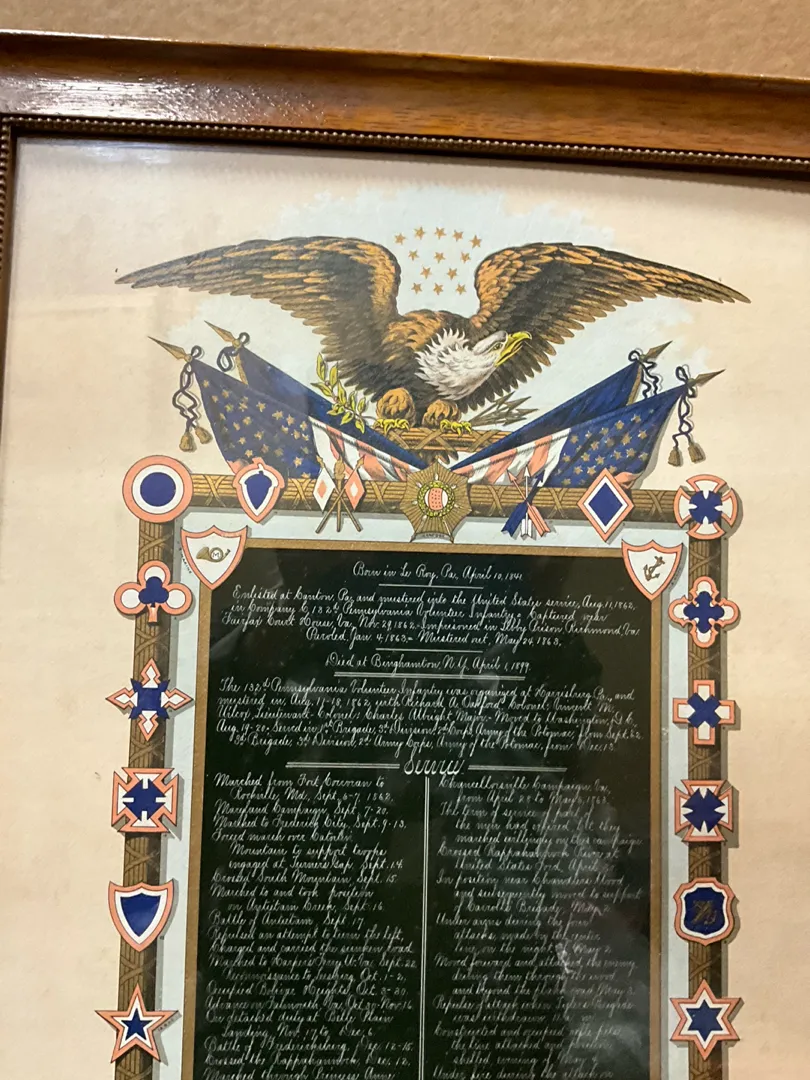 Born in Le Roy, Pa., April 10, 1841
Enlisted at Canton, Pa. and mustered into the United States service, Aug. 11, 1862,
in Company C, 132d Pennsylvania Volunteer Infantry. Captured near
Fairfax Court House, Va., Nov. 29, 1862. Imprisoned in Libby Prison Richmond, Va.
Paroled, Jan. 4, 1863. Mustered out, May 24, 1863.
Died at Binghamton N.Y. April 1, 1899.
The 132nd Pennsylvania Volunteer Infantry was organized at Harrisburg Pa., and
mustered in Aug. 11-18, 1862, with Richard A. Oakford Colonel; Vincent M.
Wilcox, Lieutenant-Colonel; Charles Albright Major. Moved to Washington, D.C.
Aug. 19-20. Served in 1st Brigade, 3d Division, 2d Corps Army of the Potomac, from Sept. 62.
Brigade, 3d Division, 2d Army Corps, Army of the Potomac, from Dec. 13.
Service
Marched from Fort Corcoran to
Rockville, Md., Sept. 6-7, 1862.
Maryland Campaign, Sept. 7-20.
Marched to Frederick City, Sept. 9-13.
Forced march over Catoctin
Mountain to support troops
engaged at Turners Gap, Sept. 14.
Crossed South Mountain, Sept. 15.
Marched to and took position
on Antietam Creek, Sept. 16.
Battle of Antietam, Sept. 17.
Repulsed an attempt to turn the left,
Charged and carried the sunken road.
Marched to Harpers Ferry, Va., Sept. 22.
Reconnoissance to Leesburg, Oct. 1-2.
Occupied Bolivar Heights, Oct. 3-30.
Advance on Falmouth, Va., Oct. 30-Nov. 16.
On detached duty at Belle Plain
Landing, Nov. 17 to Dec. 6.
Battle of Fredericksburg, Dec. 12-15.
Crossed the Rappahannock, Dec. 12.
Marched through Princess Anne
Chancellorsville Campaign, Va.
from April 28 to May 5, 1863.
The term of service of part
the men had expired, but they
marched willingly on this campaign.
Crossed Rappahannock River at
United States Ford, April
In position near Chandlers
and subsequently moved to support
of Carroll's Brigade, May 2.
Under arms during the
attacks made on the center
line on the night of May 2.
Moved forward and attacked the enemy
driving them through the wood
and beyond the plank road, May 3.
Repulse of attack when
was withdrawn
Constructed and occupied rifle pits,
the line attacked and
shelled morning of May 4.
Under fire during the attack on